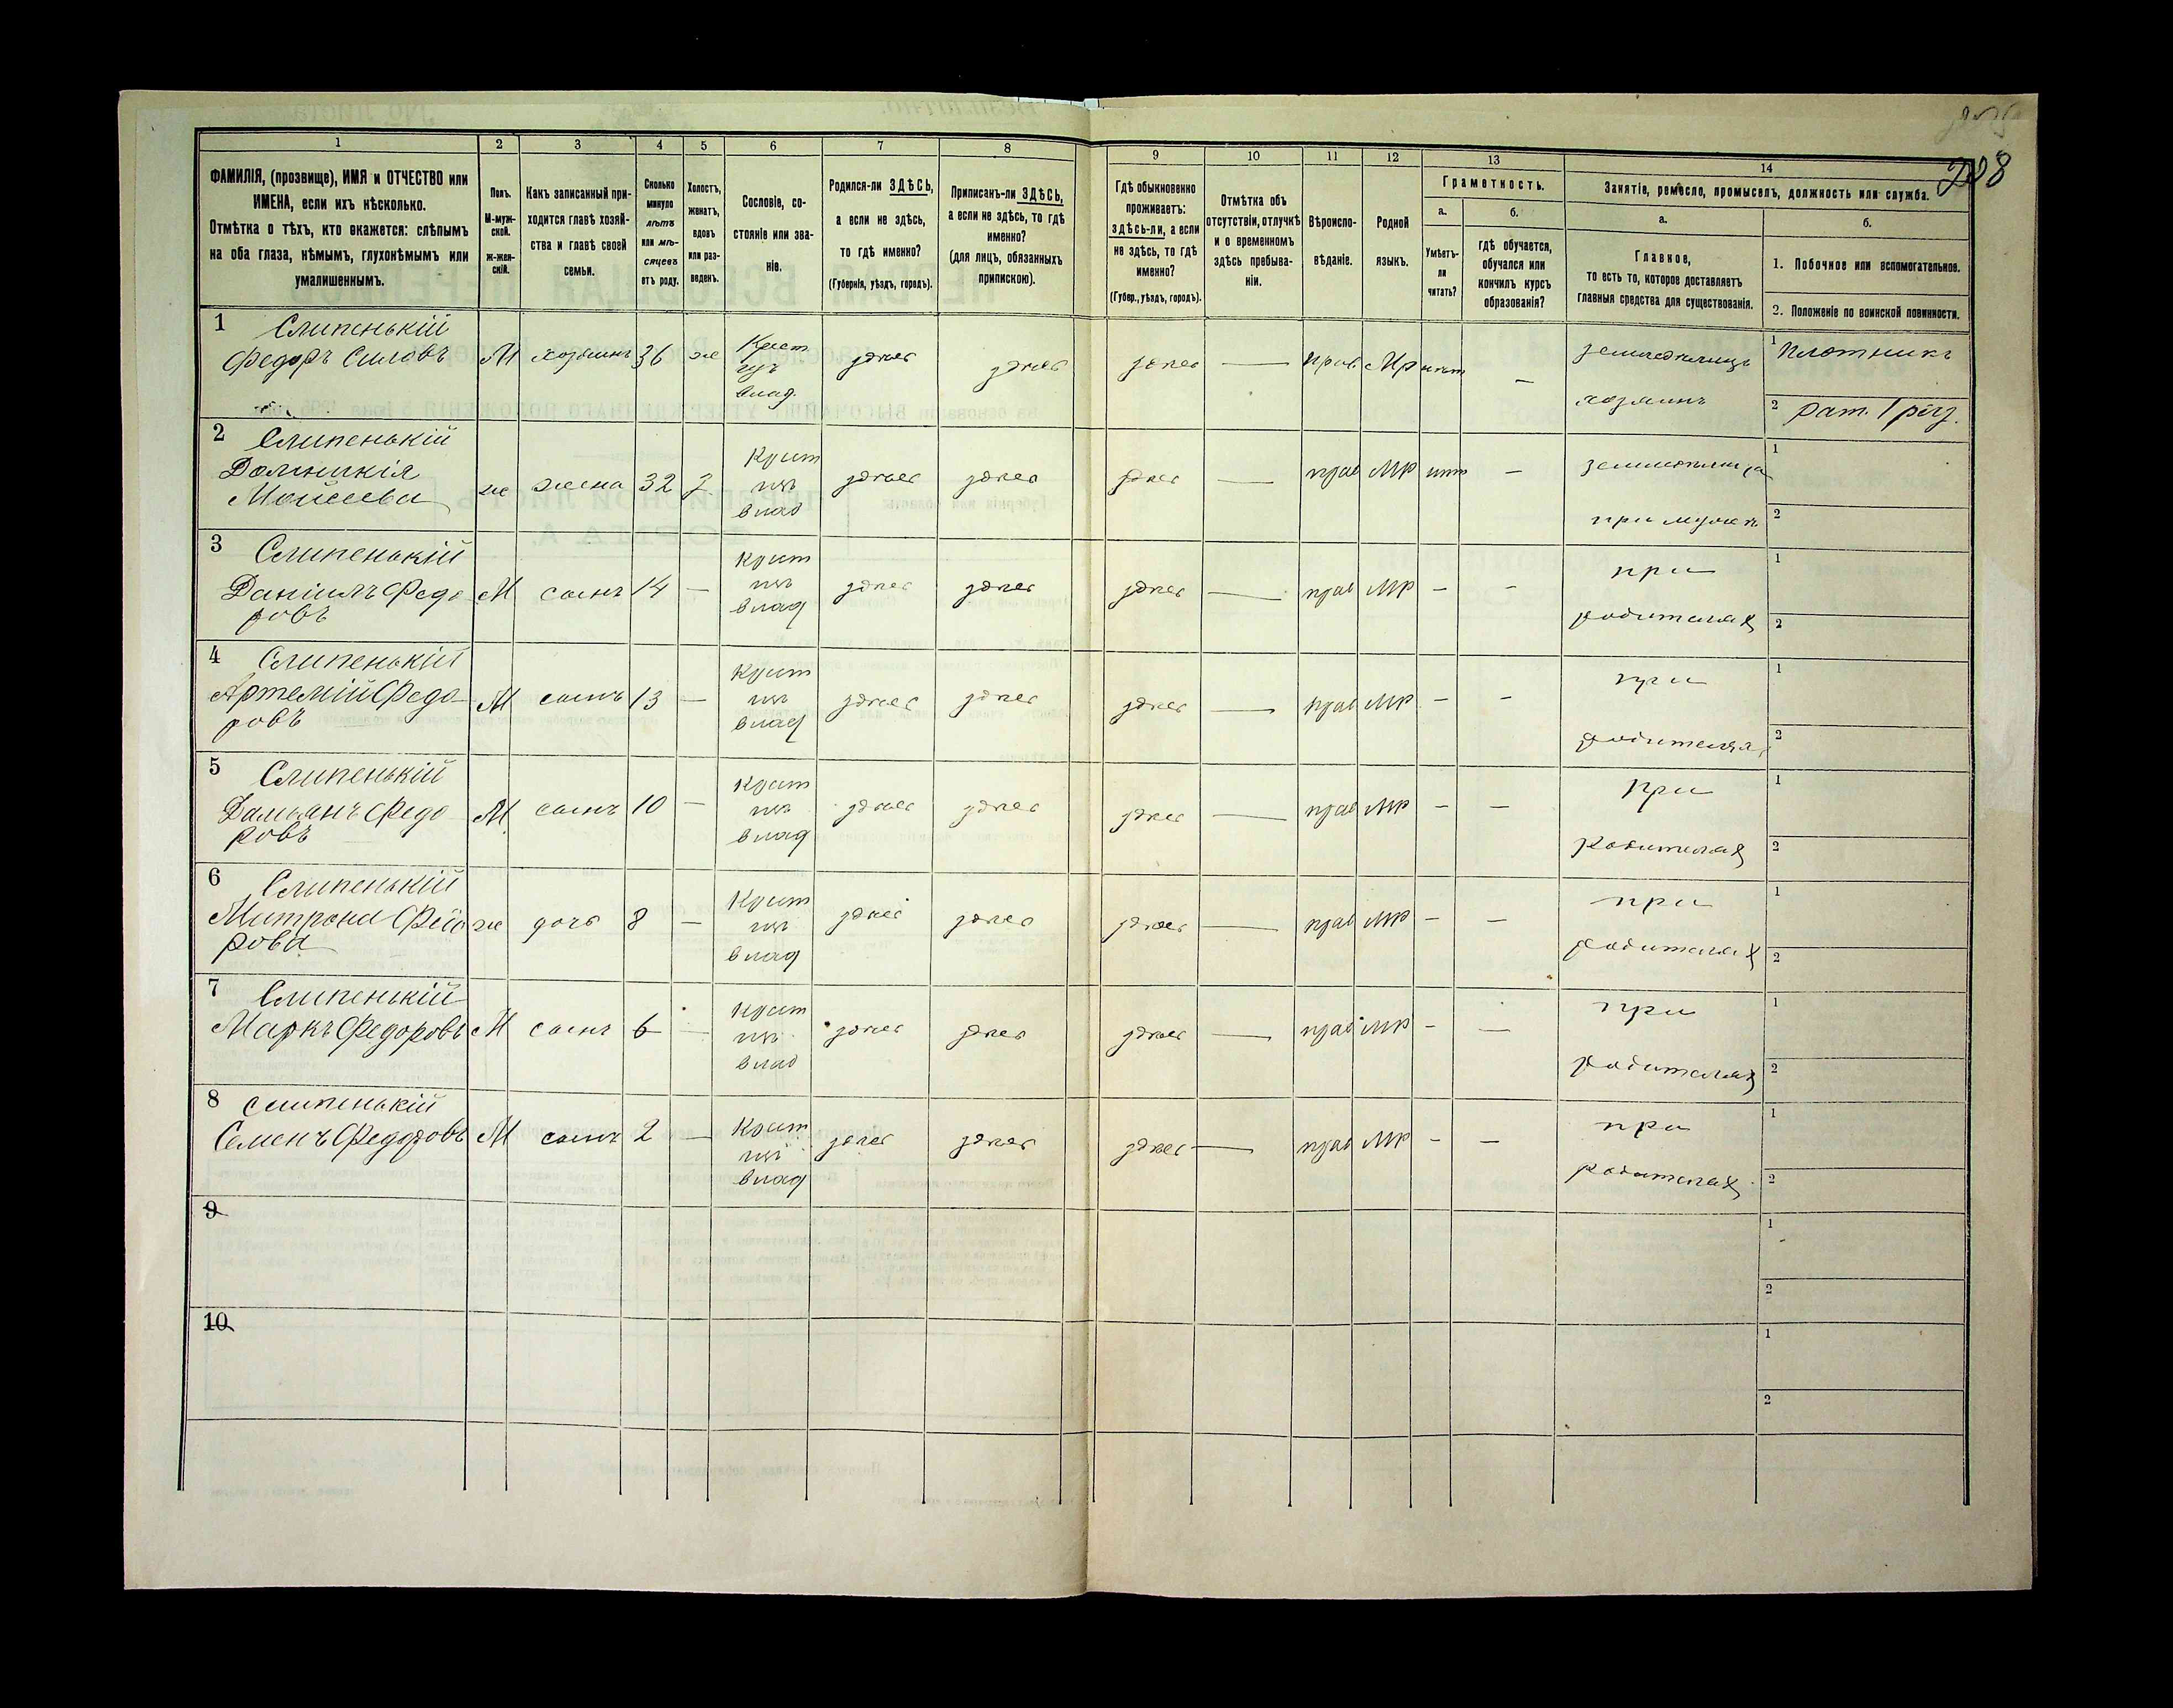 208
1
2
3
4
5
6
7
8
9
10
11
12
13
14
ФАМИЛІЯ, (прозвище), ИМЯ и ОТЧЕСТВО или
ИМЕНА, если ихъ нѣсколько.
Отмѣтка о тѣхъ, кто окажется: слѣпымъ
на оба глаза, нѣмымъ, глухонѣмымъ или
умалишеннымъ.
Полъ.
М-муж-
ской.
ж-жен-
скій.
Какъ записанный при-
ходится главѣ хозяй-
ства и главѣ своей
семьи.
Сколько
минуло
лѣтъ
или мѣ-
сяцевъ
отъ роду.
Холостъ,
женатъ,
вдовъ
или раз-
веденъ.
Сословіе, со-
стояніе или зва-
ніе.
Родился-ли ЗДѢСЬ,
а если не здѣсь,
то гдѣ именно?
(Губернія, уѣздъ, городъ).
Приписанъ-ли ЗДѢСЬ,
а если не здѣсь, то гдѣ
именно?
(для лицъ, обязанныхъ
припискою).
Гдѣ обыкновенно
проживаетъ:
здѣсь-ли, а если
не здѣсь, то гдѣ
именно?
(Губер., уѣздъ, городъ).
Отмѣтка объ
отсутствіи, отлучкѣ
и о временномъ
здѣсь пребыва-
ніи.
Вѣроиспо-
вѣданіе.
Родной
языкъ.
Грамотность.
а.
Умѣетъ-
ли
читать?
б.
Гдѣ обучается,
обучался или
кончилъ курсъ
образованія?
Занятіе, ремесло, промыселъ, должность или служба.
а.
Главное,
то есть то, которое доставляетъ
главныя средства для существованія.
б.
1. Побочное или вспомогательное.
2. Положеніе по воинской повинности.
1 Слипенькій
Федоръ Силовъ М хозяинъ 36 же Крест здѣсь здѣсь здѣсь — прав Мр нѣт — земледѣлецъ 1 Плотникъ
влад. хозяинъ 2 рат. 1 раз.
2 Слипенькій
Моисеева же жена 32 з. Крест влад здѣсь здѣсь здѣсь — прав Мр нѣт — 1
при мужѣ 2
3 Слипенькій
Даніилъ Федо М сынъ 14 — Крест влад здѣсь здѣсь здѣсь — прав Мр — — при 1
ровъ родителях 2
4 Слипенькій
Артемій Федо- М сынъ 13 — Крест влад здѣсь здѣсь здѣсь — прав Мр — — при 1
ровъ родителях 2
5 Слипенькій
Дамьянъ Федо М сынъ 10 — Крест влад здѣсь здѣсь здѣсь — прав Мр — — при 1
ровъ родителях 2
6 Слипенькій
Митрона Федо же дочь 8 — Крест влад здѣсь здѣсь здѣсь — прав Мр — — при 1
рова родителях 2
7 Слипенькій
Маркъ Федоровъ М сынъ 6 — Крест влад здѣсь здѣсь здѣсь — прав Мр — — при 1
родителях 2
8 Слипенькій
Семенъ Федоровъ М сынъ 2 — Крест влад здѣсь здѣсь здѣсь — прав Мр — — при 1
родителях 2
9 1
2
10 1
2